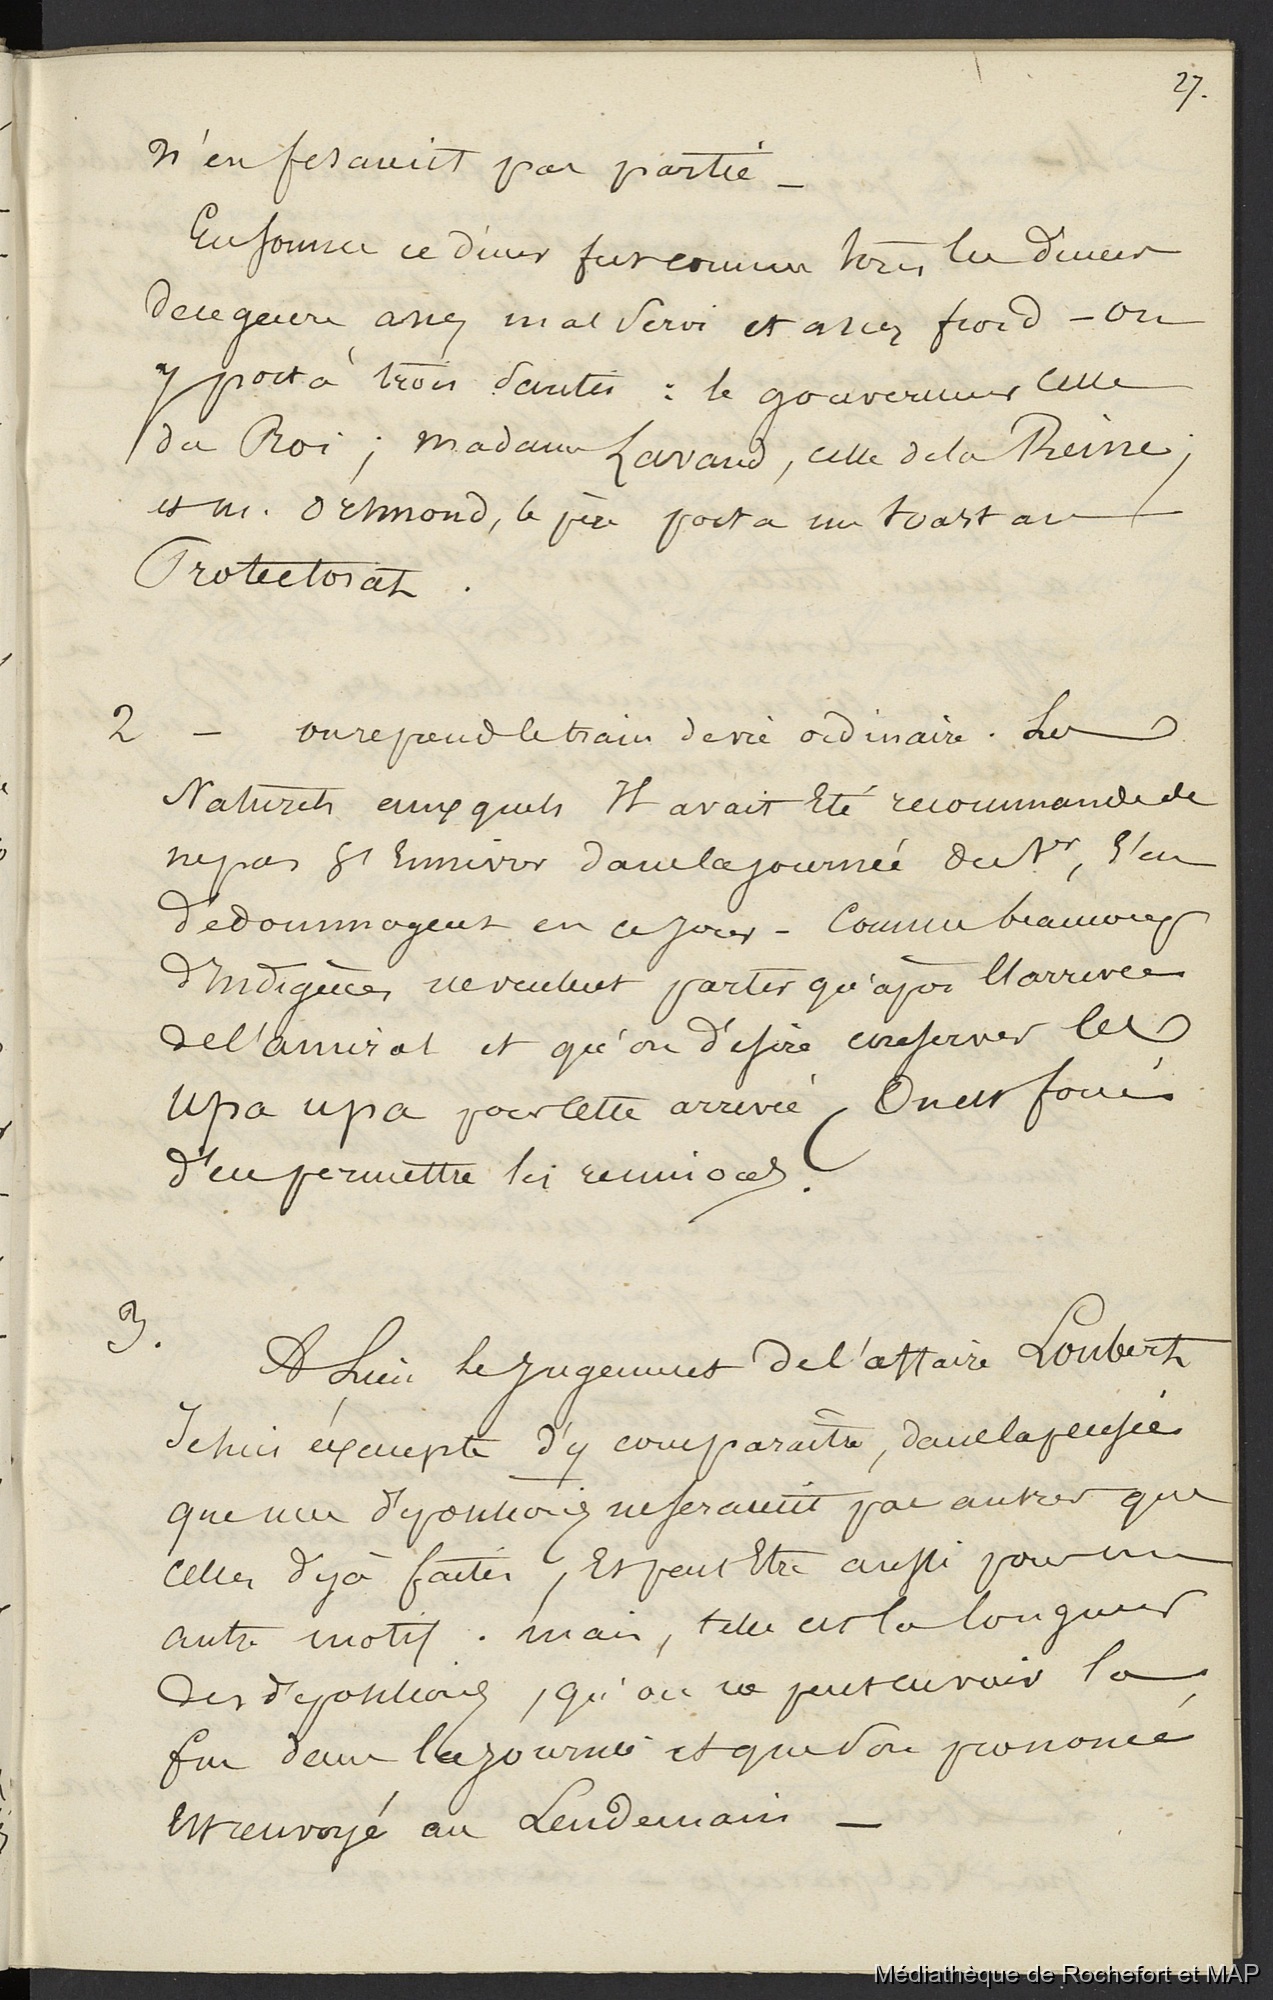 27.
n'en fesaient pas partie _
En somme ce diner fut comme tous les diners
de ce genre, assez mal servi et assez froid - on
y porta trois santés : le gouverneur celle
du Roi ; madame Lavaud, celle de la Reine ;
et m. Ormond, le père porta un toast au
Protectorat .
2 - on reprend le train de vie ordinaire . Les
Naturels auxquels Il avait Eté recommandé de
ne pas s'Ennivrer dans la journée du 1er, s'en
dédommagent en ce jour - Comme beaucoup
d'Indigènes ne veulent partir qu'après l'arrivée
de l'amiral et qu'on désire conserver les
upa upa pour cette arrivée, On est forcé
d'en permettre les reunions.
3. A Lieu le Jugement de l'affaire Loubert
Je suis éxempté d'y comparaître, dans la pensée
que mes dépositions ne seraient pas autres que
celles déjà faites, Et peut Etre aussi pour un
autre motif . mais, telle est la longueur
des dépositions, qu'on ne peut en voir la
fin dans la journée et que son prononcé
Est renvoyé au Lendemain _
Médiathèque de Rochefort et MAP